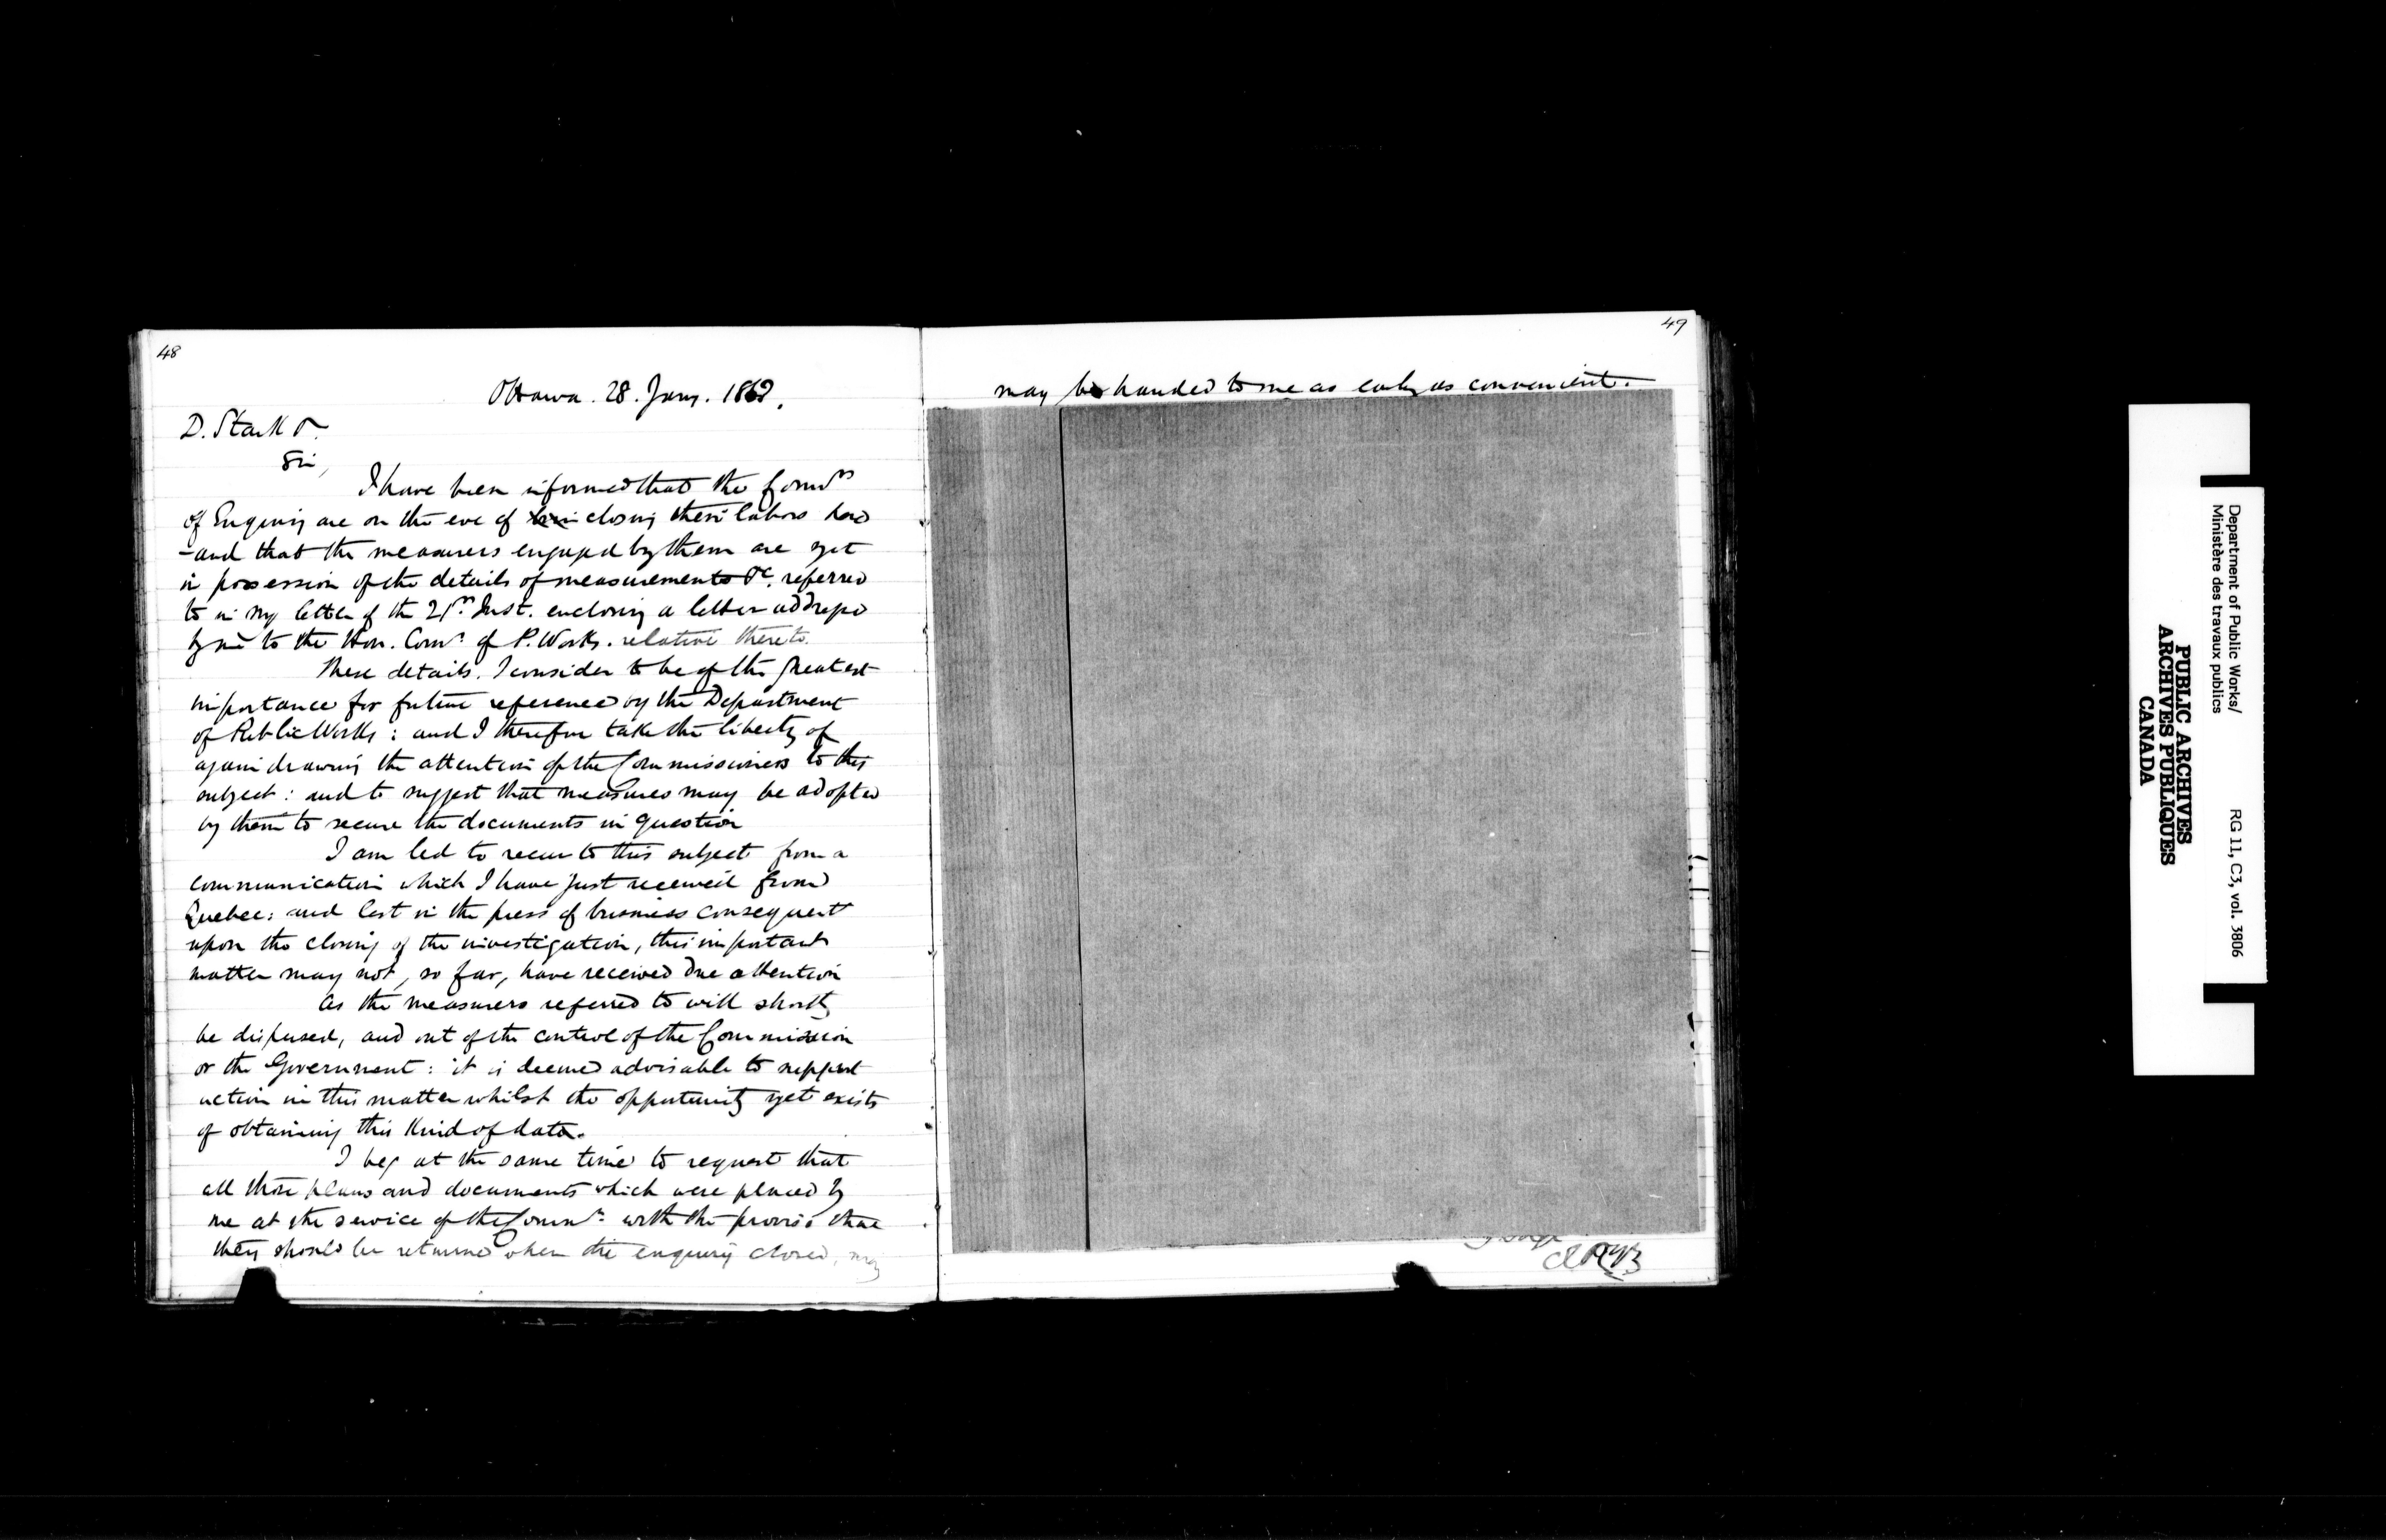 48
Ottawa. 28. Jany. 1862.
D. Stark
Sir,
I have been informed that the Comrs
of Enquiry are on the eve of closing their labors here
- and that the measurers engaged by them are yet
in possession of the details of measurements &c. referred
to in my letter of the 21st Inst. enclosing a letter addressed
by me to the Hon. Comr of P. Works. relative thereto.
These details, I consider to be of the greatest
importance for future reference by the Department
of Public Works : and I therefore take the liberty of
again drawing the attention of the Commissioners to this
subject : and to suggest that measures may be adopted
by them to secure the documents in question
I am led to recur to this subject from a
communication which I have just received from
Quebec : and lest in the press of business consequent
upon the closing of the investigation, this important
matter may not, so far, have received due attention
As the measurers referred to will shortly
be dispersed, and out of the control of the Commission
or the Government : it is deemed advisable to suggest
action in this matter whilst the opportunity yet exists
of obtaining this kind of data.
I beg at the same time to request that
all those plans and documents which were placed by
me at the service of the Commrs with the proviso that
they should be returned when the enquiry closed, may
49
may be handed to me as early as convenient.
Department of Public Works/
Ministère des travaux publics
RG 11, C3, vol. 3806
PUBLIC ARCHIVES
ARCHIVES PUBLIQUES
CANADA